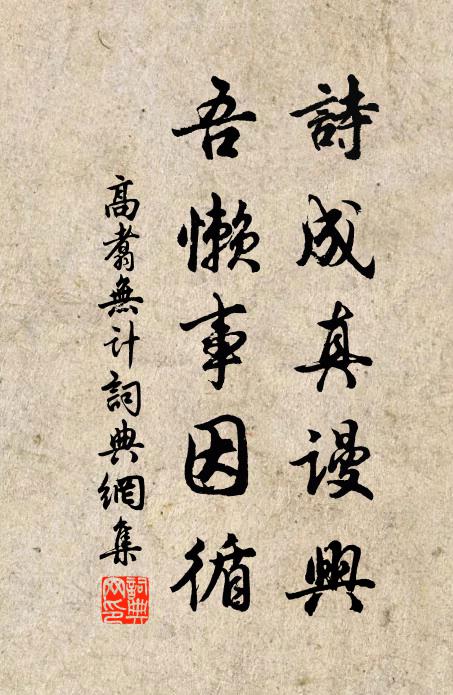 詩成真謾興
吾懶事因循
高翥無計詞典網集
詞典網印